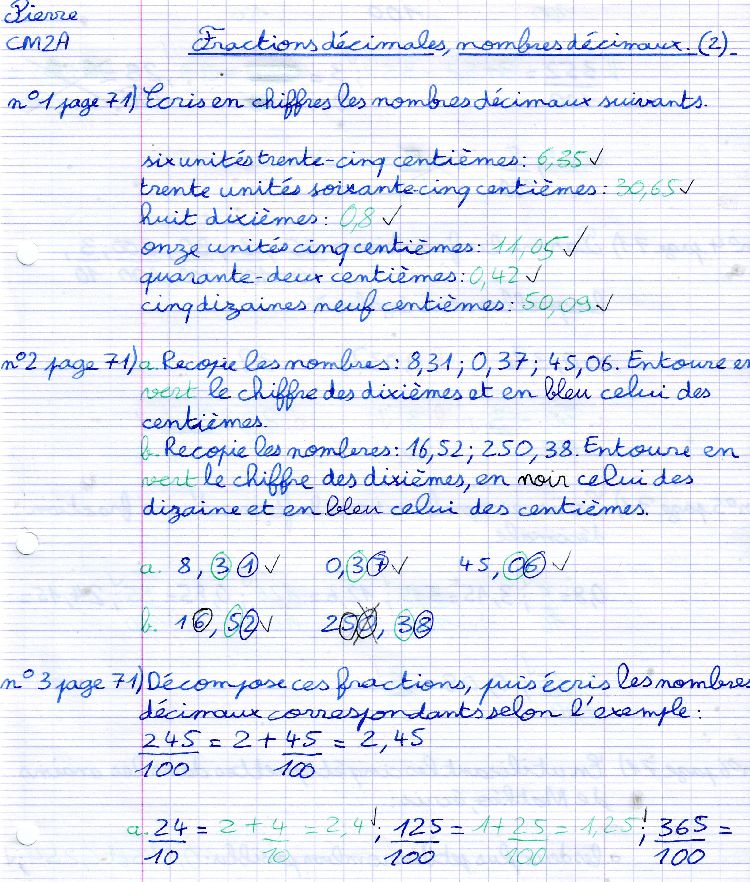 Pierre
CM2A
Fractions décimales, nombres décimaux. (2)
n°1 page 71) Ecris en chiffres les nombres décimaux suivants.
six unités trente-cinq centièmes : 6,35 ✓
trente unités soixante-cinq centièmes : 30,65 ✓
huit dixièmes : 0,8 ✓
onze unités cinq centièmes : 11,05 ✓
quarante-deux centièmes : 0,42 ✓
cinq dizaines neuf centièmes : 50,09 ✓
n°2 page 71) a. Recopie les nombres : 8,31 ; 0,37 ; 45,06. Entoure en
vert le chiffre des dixièmes et en bleu celui des
centièmes.
b. Recopie les nombres : 16,52 ; 250,38. Entoure en
vert le chiffre des dixièmes, en noir celui des
dizaine et en bleu celui des centièmes.
a. 8,31 ✓ 0,37 ✓ 45,06 ✓
b. 16,52 ✓ 250,38
n°3 page 71) Décompose ces fractions, puis écris les nombres
décimaux correspondants selon l'exemple :
245/100 = 2 + 45/100 = 2,45
a. 24/10 = 2 + 4/10 = 2,4 ; 125/100 = 1 + 25/100 = 1,25 ; 365/100 =